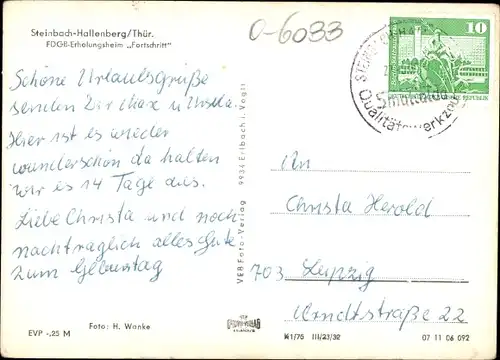 Steinbach-Hallenberg/Thür.
FDGB-Erholungsheim „Fortschritt"
0-6033
10
Qualitätswerkzeuge
Schöne Urlaubsgrüße
senden Dir Max u Ursula.
Hier ist es wieder
wunderschön da halten
wir es 14 Tage aus.
Liebe Christa und noch
nachträglich alles Gute
zum Geburtstag
VEB Foto-Verlag 9934 Erlbach i. Vogtl
An
Christa Herold
703 Leipzig
Arndtstraße 22
EVP -,25 M
Foto: H. Wanke
N1/75 III/23/32
07 11 06 092